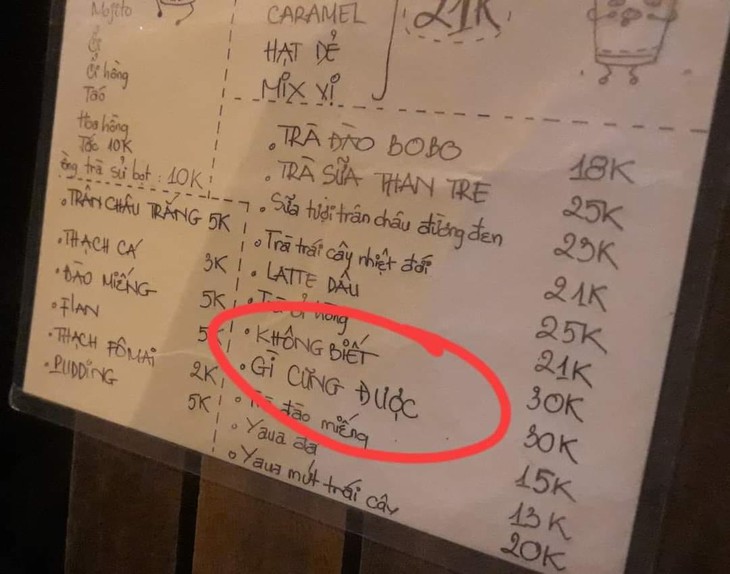 Mojito
Ổi
Ổi hồng
Táo
Hoa hồng
Tắc 10K
trà sủi bọt : 10K
TRÂN CHÂU TRẮNG 5K
THẠCH CÁ 3K
ĐÀO MIẾNG 5K
FLAN 5K
THẠCH FÔMAI 2K
PUDDING 5K
CARAMEL
HẠT DẺ
MIX VỊ
21K
TRÀ ĐÀO BOBO 18K
TRÀ SỮA THAN TRE 25K
Sữa tươi trân châu đường đen 23K
Trà trái cây nhiệt đới 21K
LATTE DÂU 25K
Trà ổi hồng 21K
KHÔNG BIẾT 30K
GÌ CŨNG ĐƯỢC 30K
Trà đào miếng 15K
Yaua đá 13K
Yaua mứt trái cây 20K